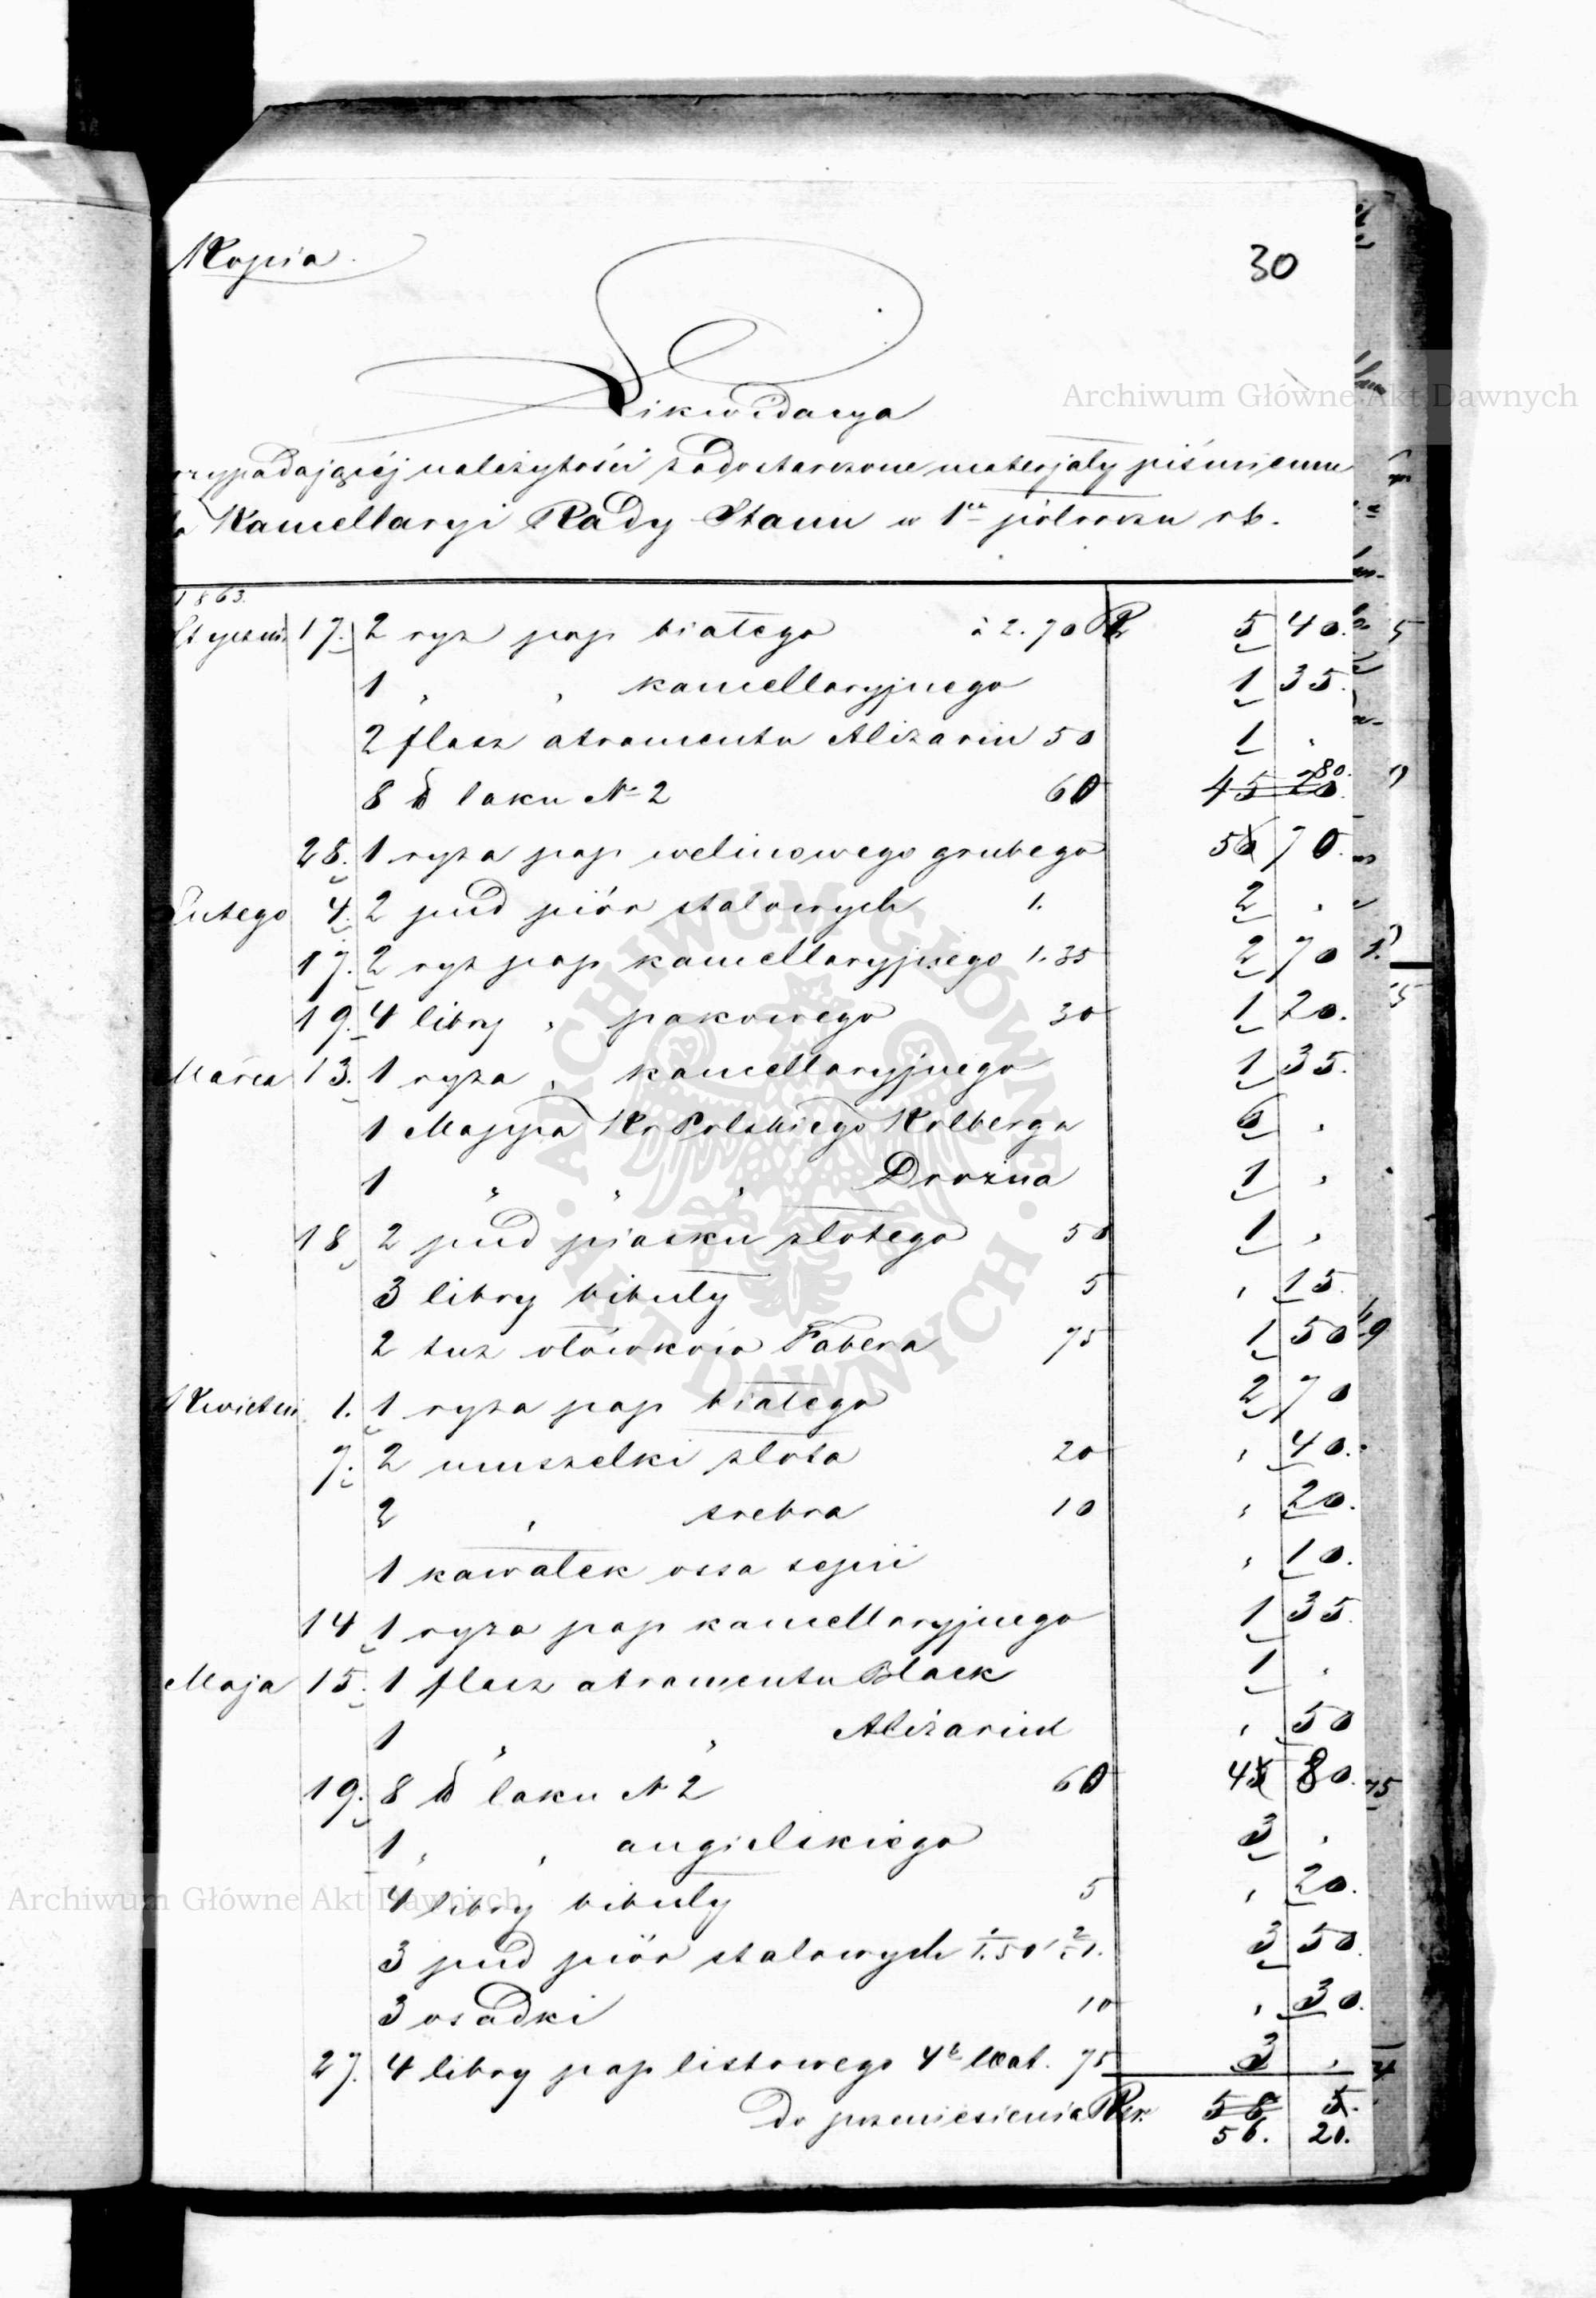 Kopia.
30
Likwidacya
przypadającéj należytości za dostarczone materjały piśmienne
Kancellaryi Rady Stanu w 1m półroczu rb.
1863.
Styczni 17. 2 ryz pap białego à 2.70 R 5 40.
1 „ „ kancellaryjnego 1 35.
2 flasz atramentu Alizarin 50 1 „
8 ℔ laku N 2 60 4 80.
28. 1 ryza pap welinowego grubego 5 70.
Lutego 4. 2 pud piór stalowych 1. 2 „
17. 2 ryz pap kancellaryjnego 1.35 2 70
19. 4 libry „ pakowego 30 1 20.
Marca 13. 1 ryza „ kancellaryjnego 1 35.
1 Mappa Kr Polskiego Kolberga 6 „
1 „ „ „ Drożna 1 „
18 2 pud piasku złotego 50 1 „
3 libry bibuły 5 „ 15
2 tuz ołówków Fabera 75 1 50
Kwietni 1. 1 ryza pap białego 2 70
7. 2 muszelki złota 20 „ 40.
2 „ srebra 10 „ 20.
1 kawałek ossa sepii „ 10.
14 1 ryza pap kancellaryjnego 1 35.
Maja 15. 1 flasz atramentu Black 1 „
1 „ „ Alizarin „ 50
19. 8 ℔ laku N 2 60 4 80.
1 „ „ angielskiego 3 „
4 libry bibuły 5 „ 20.
3 pud piór stalowych 1/1.50 2/1. 3 50.
3 osadki 10 „ 30.
27. 4 libry pap listowego 4to 75 3 „
Do przeniesienia Rsr. 58 5.
56. 20.
Archiwum Główne Akt Dawnych
ARCHIWUM GŁÓWNE AKT DAWNYCH
Archiwum Główne Akt Dawnych